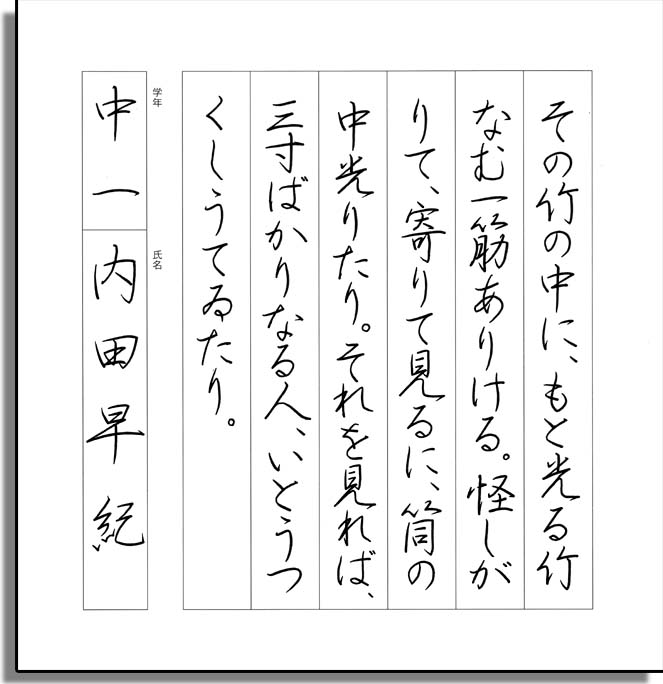 その竹の中に、もと光る竹
なむ一筋ありける。怪しが
りて、寄りて見るに、筒の
中光りたり。それを見れば、
三寸ばかりなる人、いとうつ
くしうてゐたり。
学年
中一
氏名
内田早紀